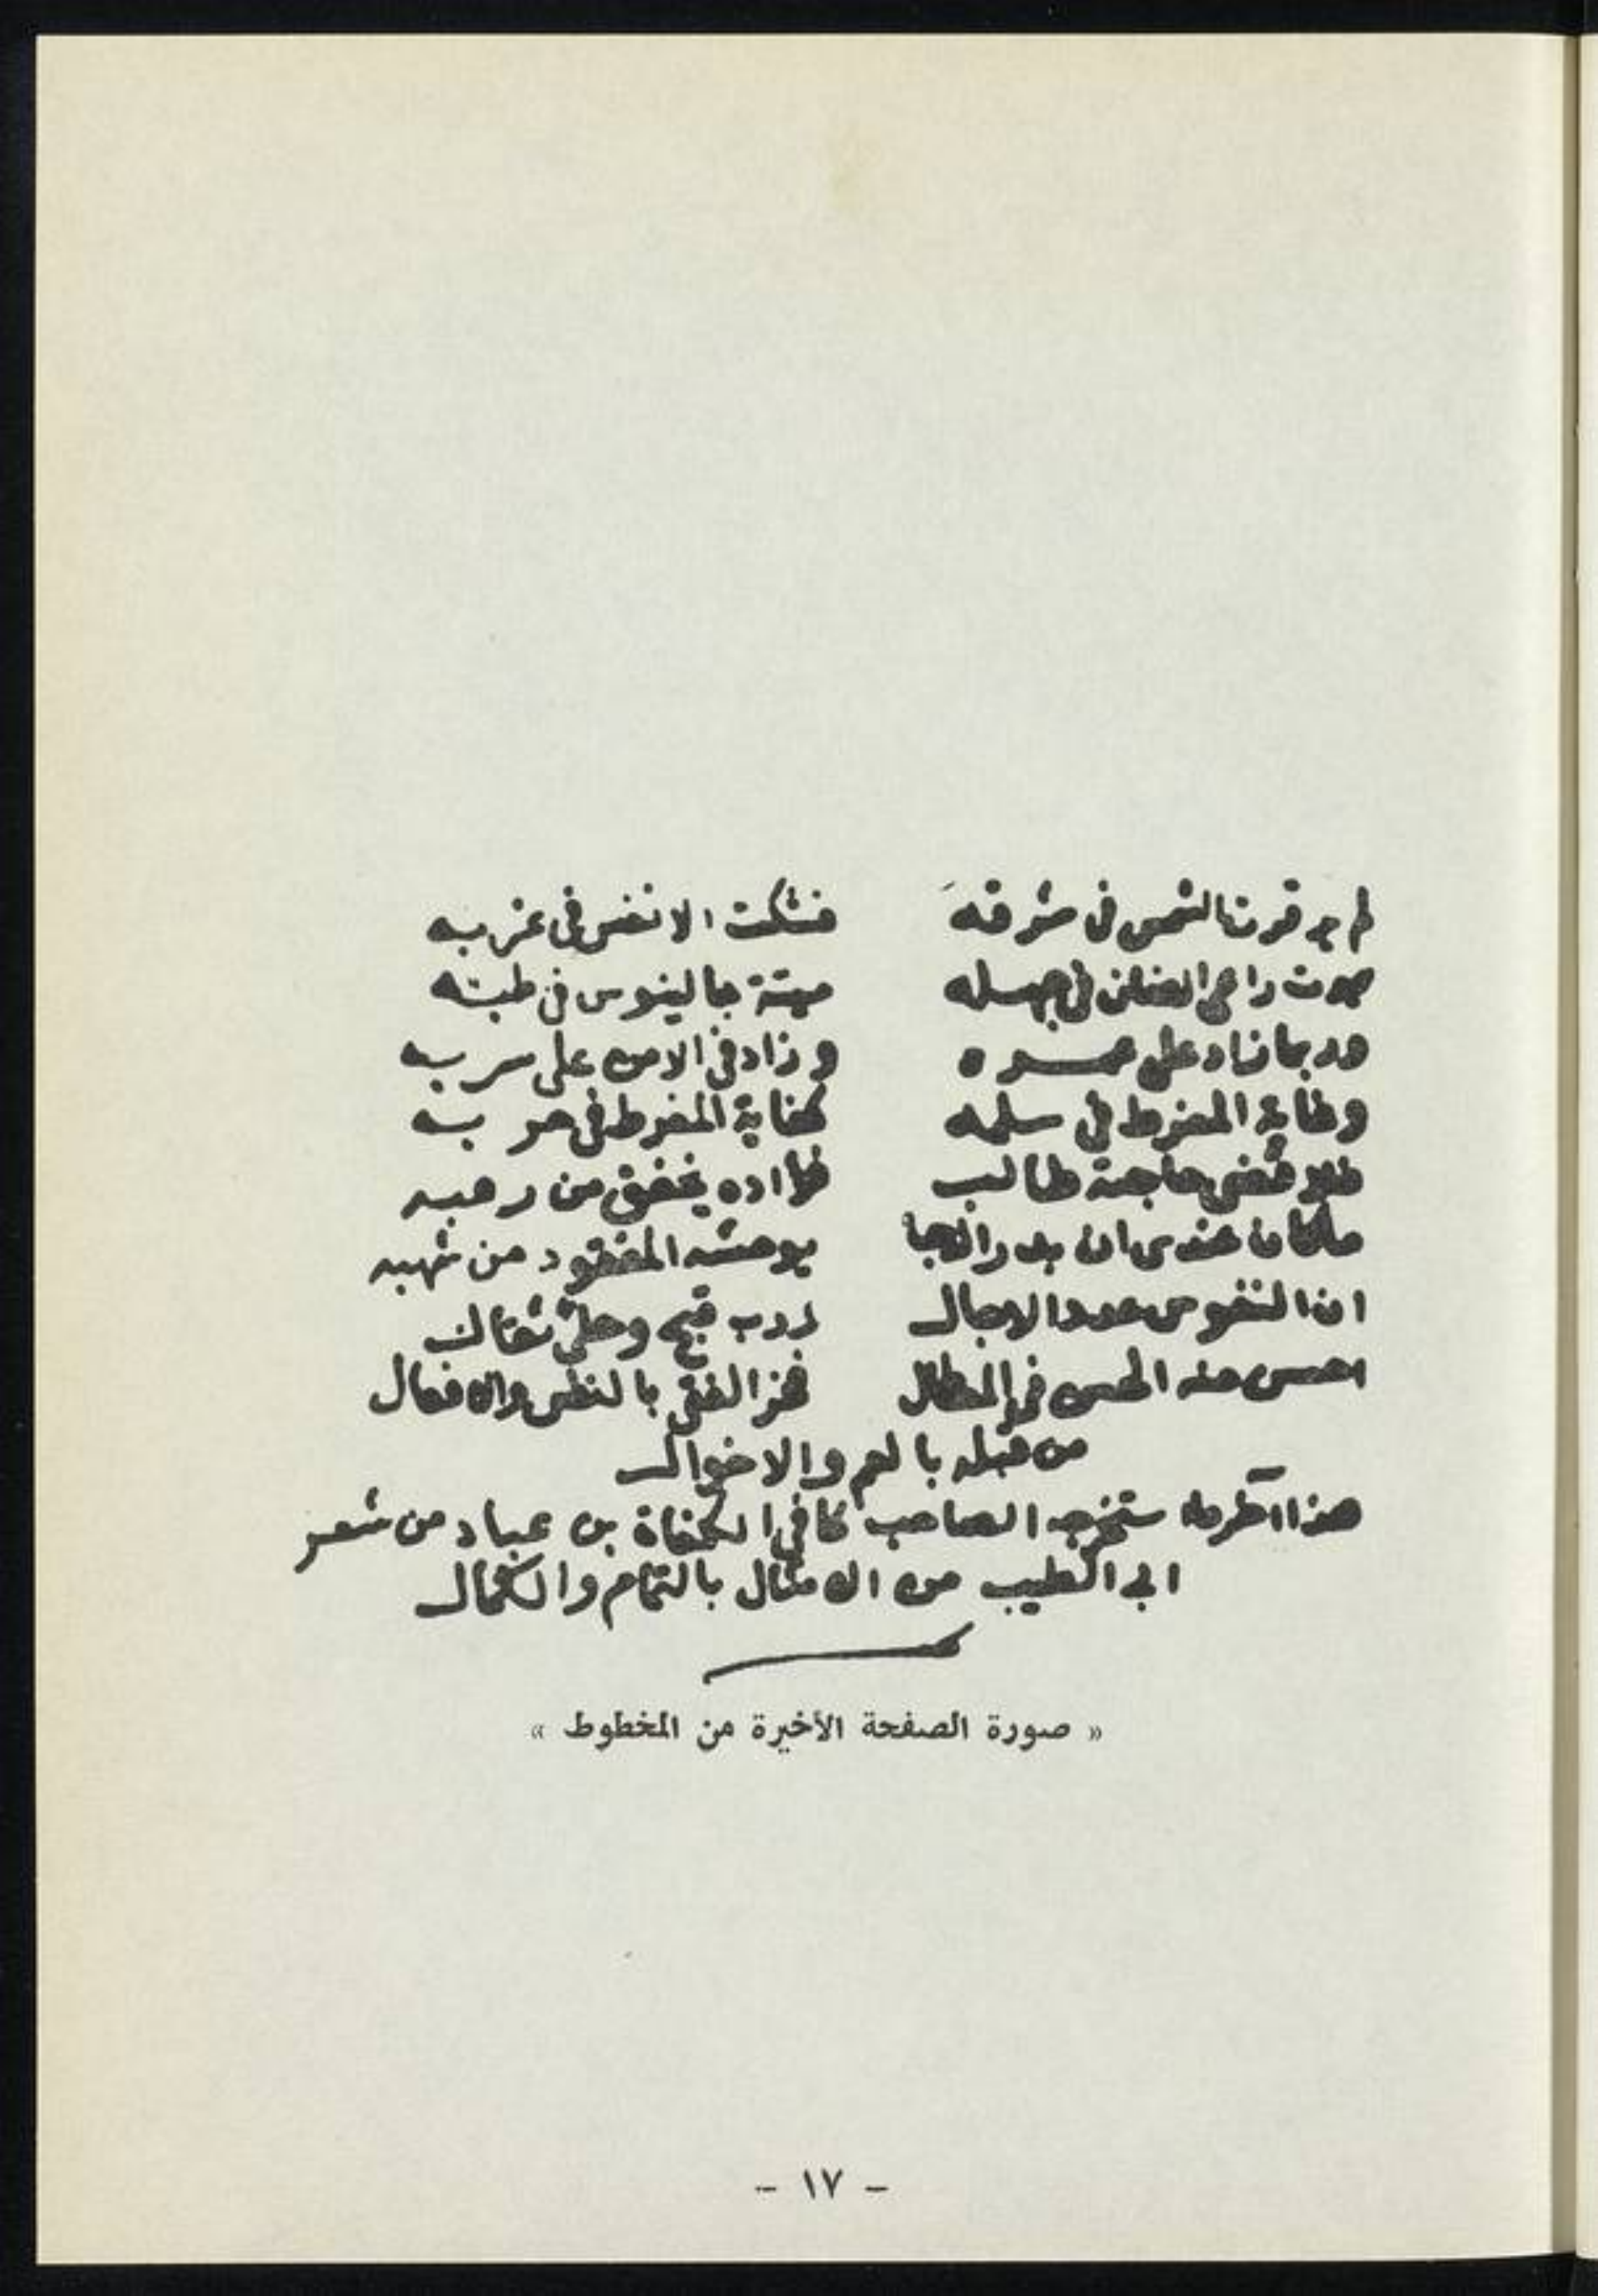 لم ير قرن الشمس فى شرقه فشكت الانفس فى غربه
يموت راعى الضان فى جهله ميتة جالينوس فى طبه
وربما زاد على عمره وزاد فى الامن على سربه
وغاية المفرط فى سلمه كغاية المفرط فى حربه
فلا قضى حاجته طالب فؤاده يخفق من رعبه
ما كان عندى ان بدر الدجا يوحشه المفقود من شهبه
ان النفوس عدد الاجال ورب قبح وحلى ثقال
احسن منه الحسن فى المعطال فخر الفتى بالنفس والافعال
من قبله بالعم والاخوال
هذا آخر ما ستخرجه الصاحب كافى الكفاة بن عباد من شعر
ابى الطيب من الامثال بالتمام والكمال
« صورة الصفحة الأخيرة من المخطوط »
- ١٧ -